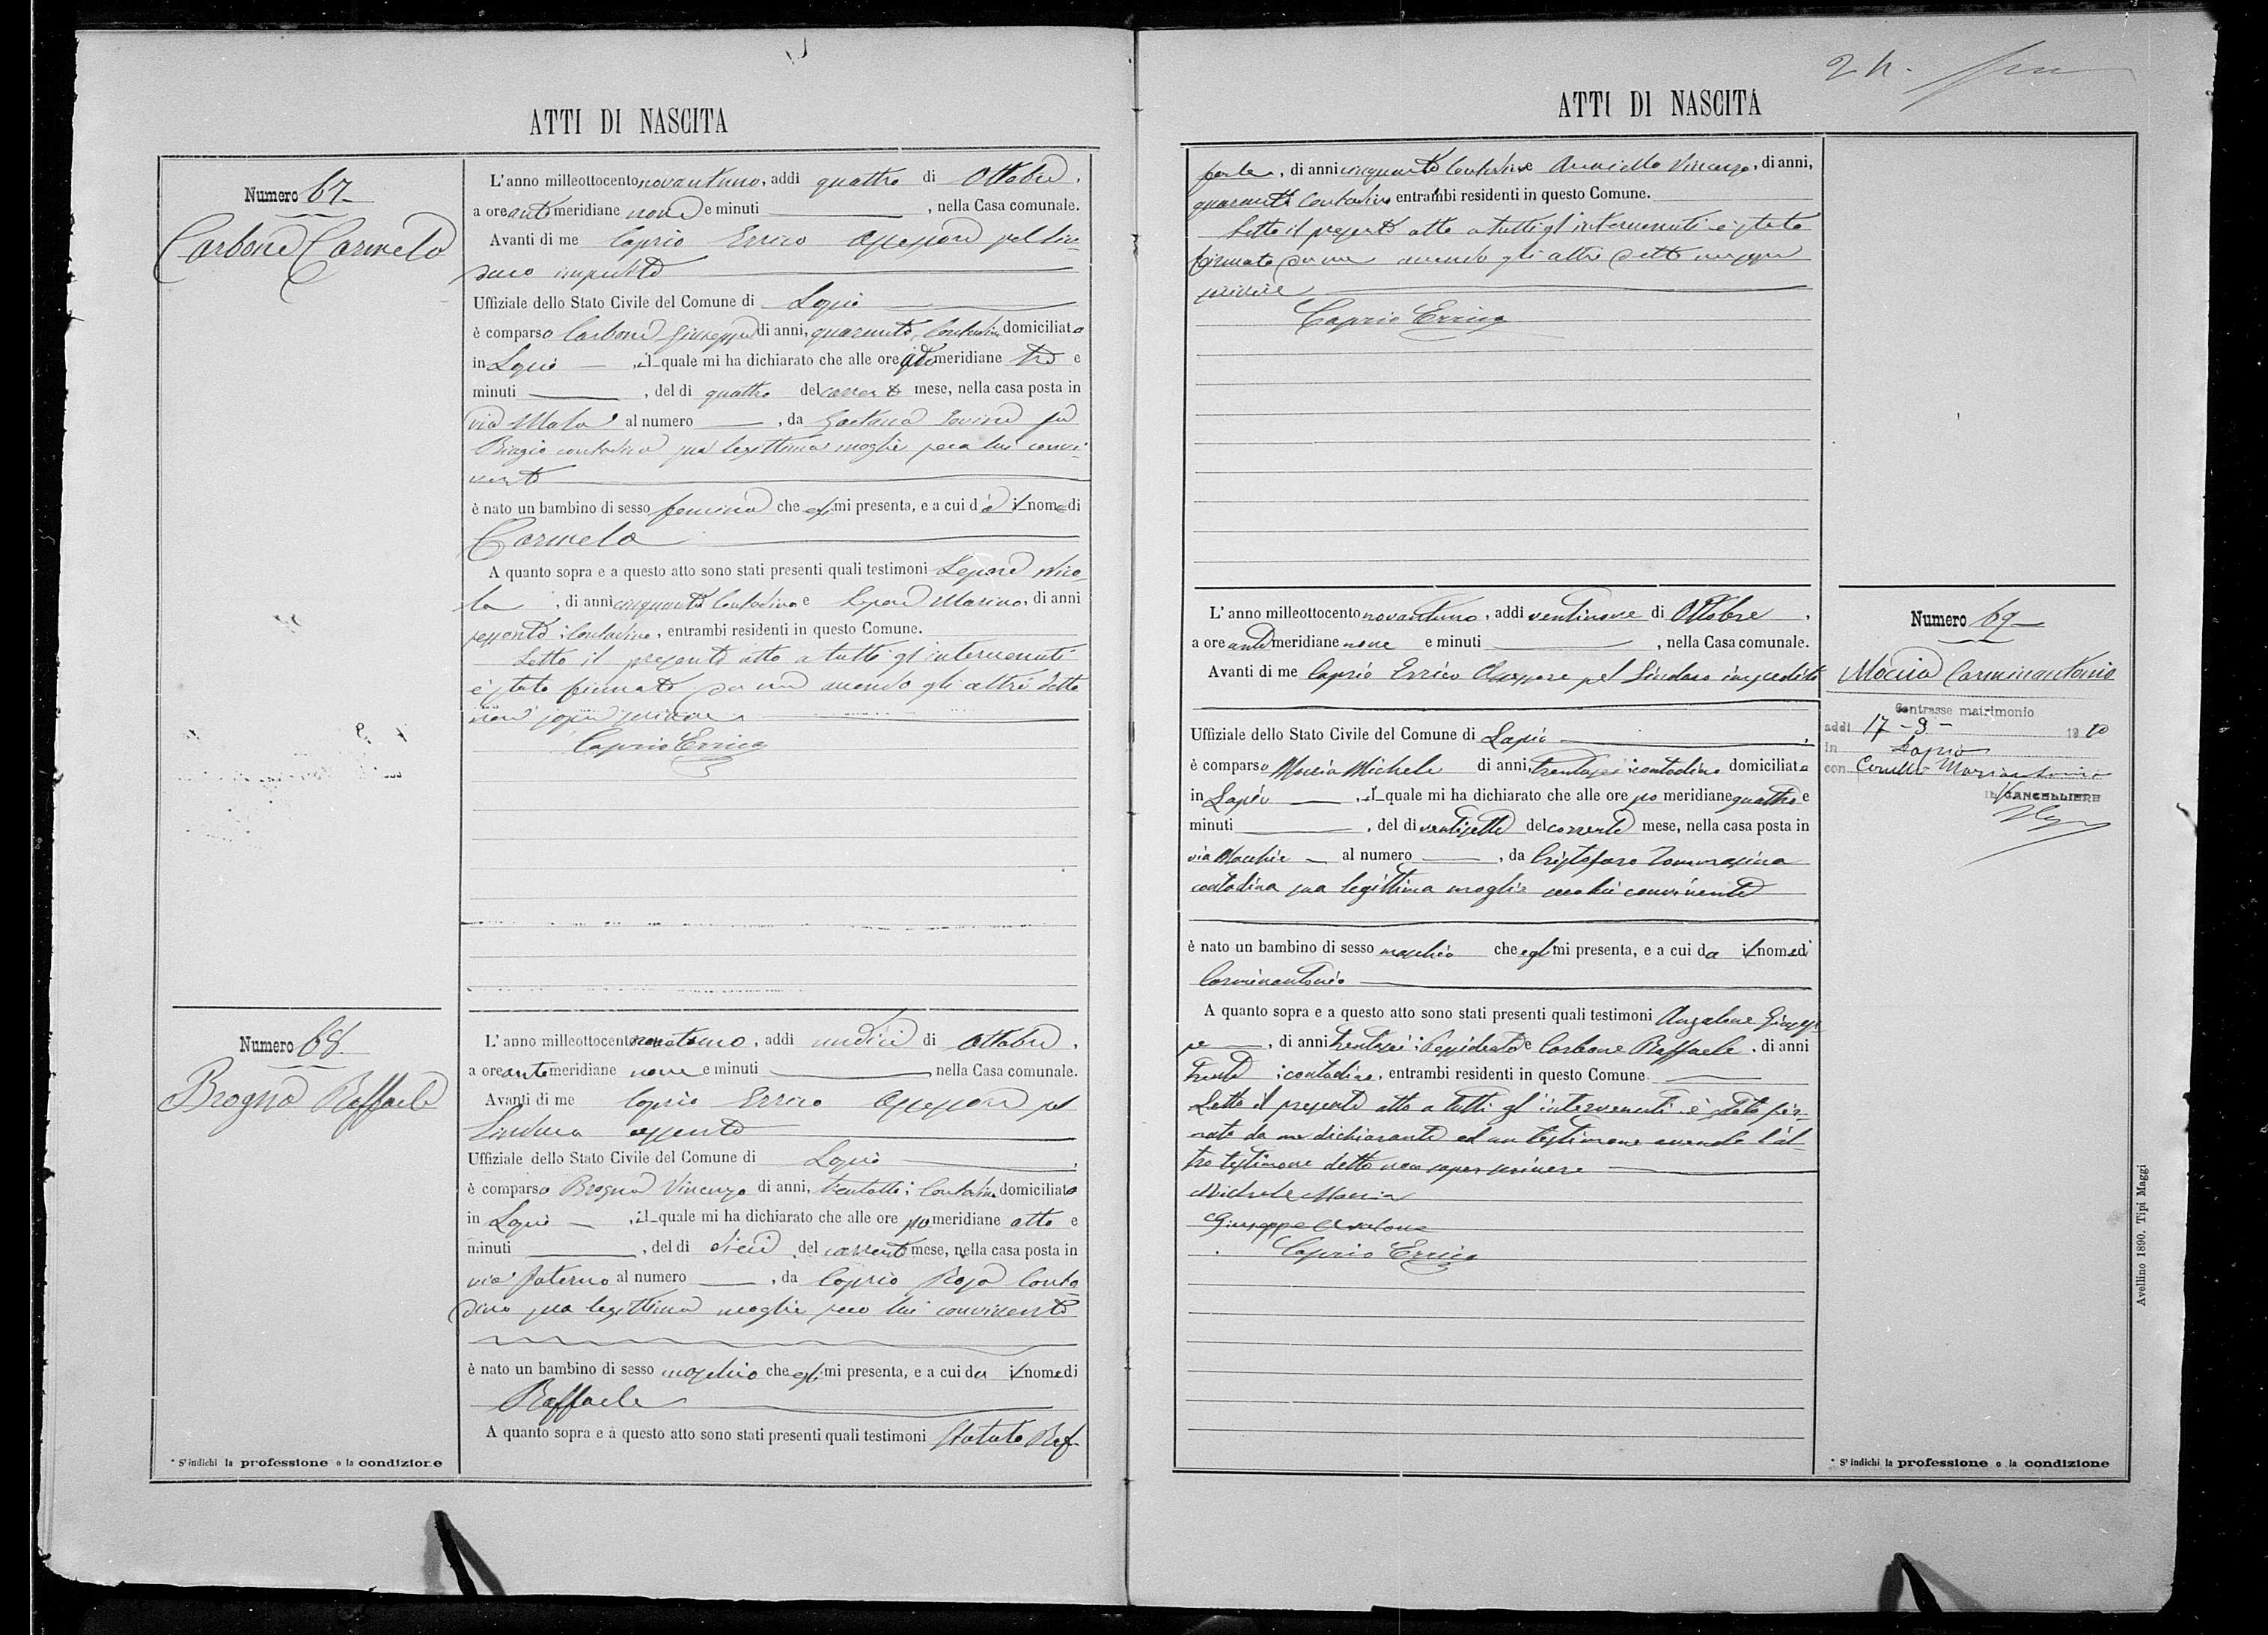 ATTI DI NASCITA
Numero 67
Carbone Carmela
L'anno milleottocento novantuno, addì quattro di Ottobre,
a ore antimeridiane nove e minuti , nella Casa comunale.
Avanti di me Caprio Errico Assessore pel Sin-
daco impedito
Uffiziale dello Stato Civile del Comune di Lapio
è comparso Carbone Giuseppe di anni, quaranta, Contadino domiciliato
in Lapio , il quale mi ha dichiarato che alle ore meridiane tre e
minuti , del dì quattro del corrente mese, nella casa posta in
via al numero , da Gaetana Iovine fu
Biagio contadina sua legittima moglie seco lui convi-
vente
è nato un bambino di sesso femina che egli mi presenta, e a cui dà il nome di
Carmela
A quanto sopra e a questo atto sono stati presenti quali testimoni Lepore Nico-
la , di anni cinquanta Contadino e Lepore Marino, di anni
sessanta, Contadino, entrambi residenti in questo Comune.
Letto il presente atto a tutti gl'intervenuti
è stato firmato da me avendo gli altri detto
non saper scrivere
Caprio Errico
Numero 68
Brogna Raffaele
L'anno milleottocento novantuno, addì undici di Ottobre,
a ore antimeridiane nove e minuti , nella Casa comunale.
Avanti di me Caprio Errico Assessore pel
Sindaco assente
Uffiziale dello Stato Civile del Comune di Lapio
è comparso Brogna Vincenzo di anni, trentotto; Contadino domiciliato
in Lapio , il quale mi ha dichiarato che alle ore pomeridiane otto e
minuti , del dì dieci del corrente mese, nella casa posta in
via Paterno al numero , da Caprio Rosa Conta
dina sua legittima moglie seco lui convivente
è nato un bambino di sesso maschio che egli mi presenta, e a cui da il nome di
Raffaele
A quanto sopra e a questo atto sono stati presenti quali testimoni Statuto Raf-
* S'indichi la professione o la condizione
ATTI DI NASCITA
faele, di anni cinquanta Contadino e Vincenzo, di anni,
quaranta Contadino entrambi residenti in questo Comune.
Letto il presente atto a tutti gl'intervenuti è stato
firmato da me avendo gli altri detto non saper
scrivere
Caprio Errico
L'anno milleottocento novantuno, addì ventinove di Ottobre,
a ore antimeridiane nove e minuti , nella Casa comunale.
Avanti di me Caprio Errico Assessore pel Sindaco impedito
Uffiziale dello Stato Civile del Comune di Lapio
è comparso Moccia Michele di anni, trentasei contadino domiciliato
in Lapio , il quale mi ha dichiarato che alle ore pomeridiane quattro e
minuti , del dì ventisette del corrente mese, nella casa posta in
via Macchie al numero , da Cristofaro Tommasina
contadina sua legittima moglie seco lui convivente
è nato un bambino di sesso maschio che egli mi presenta, e a cui da il nome di
Carminantonio
A quanto sopra e a questo atto sono stati presenti quali testimoni Anzalone Giusep-
pe , di anni trentasei; Possidente e Carbone Raffaele, di anni
trenta; contadino, entrambi residenti in questo Comune
Letto il presente atto a tutti gl'intervenuti è stato fir-
mato da me dichiarante ed un testimone avendo l'al-
tro testimone detto non saper scrivere
Michele Moccia
Giuseppe Anzalone
Caprio Errico
Numero 69
Moccia Carminantonio
Contrasse matrimonio
addì 17-9- 1910
in Lapio
con
IL CANCELLIERE
* S'indichi la professione o la condizione
Avellino 1890. Tipi Maggi